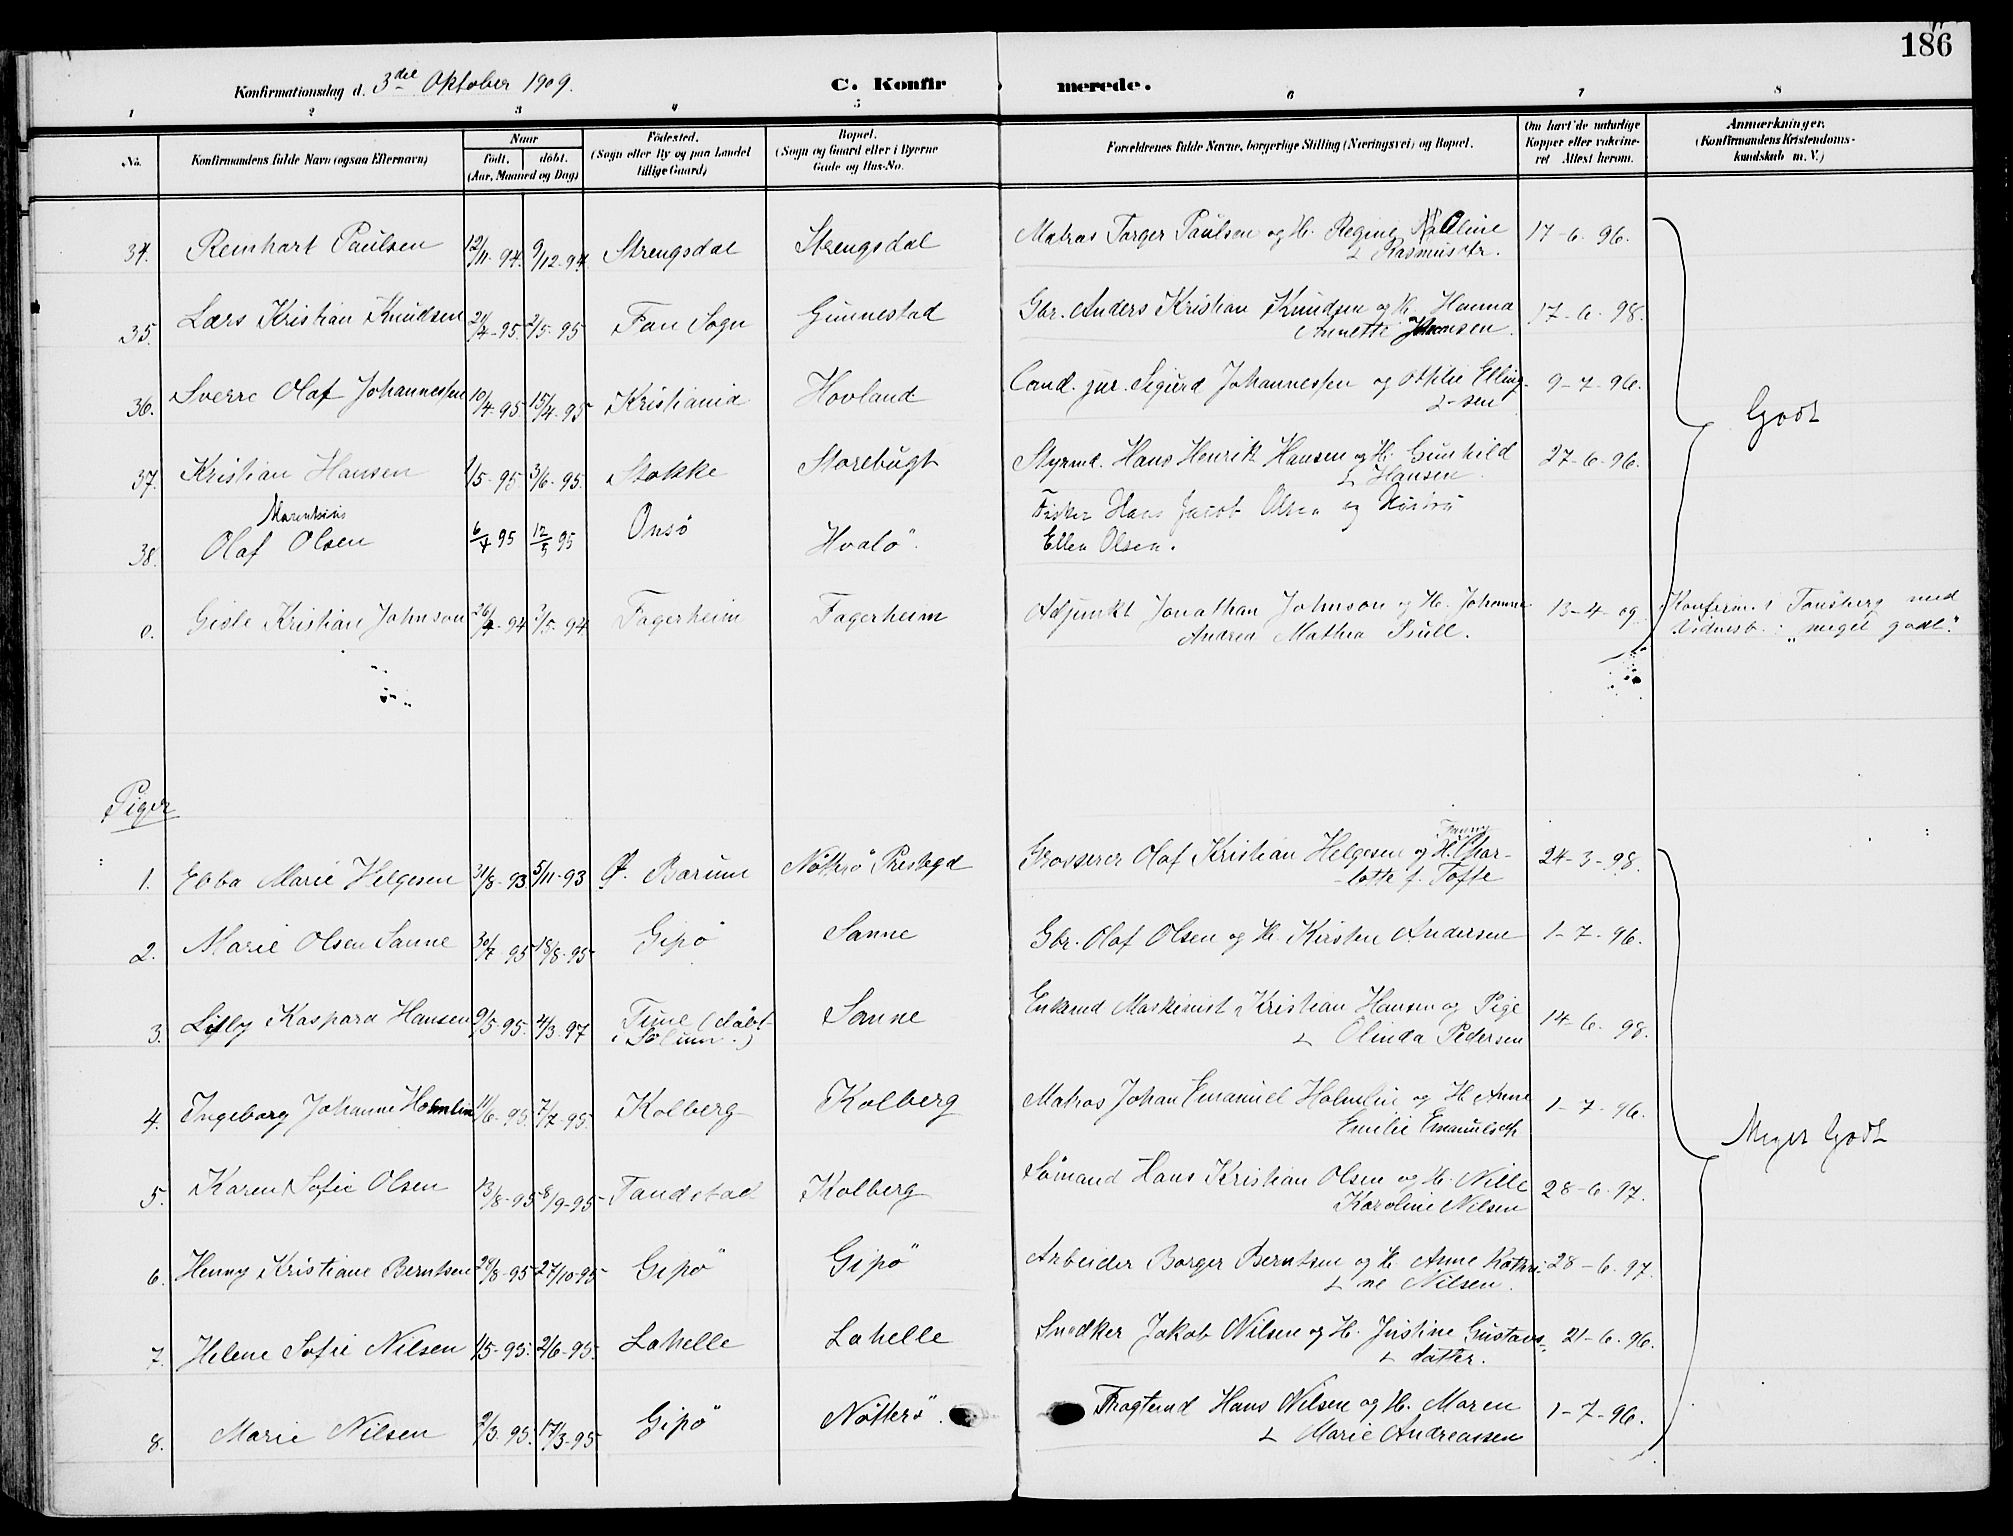 186
Konfirmationsdag d. 3die Oktober 1909.
C. Konfirmerede.
1 2 3 4 5 6 7 8
No.
Konfirmandens fulde Navn (ogsaa Efternavn)
Naar
født. døbt.
(Aar, Maaned og Dag)
Fødested.
(Sogn eller By og paa Landet
tillige Gaard)
Bopæl.
(Sogn og Gaard eller i Byerne
Gade og Hus-No.
Forældrenes fulde Navne, borgerlige Stilling (Næringsvei) og Bopæl.
Om havt de naturlige
Kopper eller vaccine-
ret Attest herom.
Anmærkninger.
(Konfirmandens Kristendoms-
kundskab m. V.)
34. Reinhart Paulsen 12/11-94. 9/12-94. Strengsdal Strengsdal Matros Torger Paulsen og H. Regine Oline 17-6-96.
Rasmusdtr.
35. Lars Kristian Knudsen 24/4-95. 2/5-95 Fon Sogn Gunnestad Gbr. Anders Kristian Knudsen og H. Hanna 17-6-98.
Annette Johansen.
36. Sverre Olaf Johannessen 10/4-95 15/4-95 Kristiania Hovland Cand. jur. Sigurd Johannessen og Othilie Elling- 9-7-96.
sen
Godt
37. Kristian Hansen 1/5-95 3/6-95. Stokke Storebugt Styrmd. Hans Henrik Hansen og H. Gunhild 27-6-96.
Hansen
Marentsius
38. Olaf Olsen 6/4 95 12/5 95 Onsø Hvalø. Fisker Hans Jacob Olsen og Hustru
Ellen Olsen.
c. Gisle Kristian Johnson 26/4-94 3/5-94 Fagerheim Fagerheim Adjunkt Jonathan Johnson og H. Johanne 13-4-09. Konfirm. i Tønsberg med
Andrea Mathea Bull. Vidnesb.: "meget godt."
Piger
Fanny
1. Ebba Marie Helgesen 31/8-93 5/11-93 Ø. Bærum Nøtterø Prestegd Grosserer Olaf Kristian Helgesen og H. Char- 24-3-98.
lotte f. Tofte
2. Marie Olsen Sanne 30/7-95 18/8-95 Gipø Sanne Gbr. Olaf Olsen og H. Kirsten Andersen 1-7-96.
3. Lilly Kaspara Hansen 9/5-95. 4/3-97 Tune (døbt Sanne Enkemd Maskinist Kristian Hansen og Pige 14-6-98.
i Solum.) Olinda Pedersen
4. Ingeborg Johanne Holmlin 11/6-95. 7/7-95. Kolberg Kolberg Matros Johan Emanuel Holmlin og H. Anne 1-7-96.
Emilie Emanuelsen
Meget Godt
5. Karen Sofie Olsen 13/8-95 8/9-95 Tandstad Kolberg Sømand Hans Kristian Olsen og H. Nille 28-6-97.
Karoline Nilsen
6. Henny Kristiane Berntsen 28/8-95 27/10-95 Gipø Gipø Arbeider Borger Berntsen og H. Anne Kathri- 28-6-97.
ne Nilsen.
7. Helene Sofie Nilsen 1/5-95. 2/6-95. Lahelle Lahelle Snedker Jakob Nilsen og H. Justine Gustavs- 21-6-96.
datter.
8. Marie Nilsen 2/3-95. 17/3-95 Gipø Nøtterø. Fragtemd Hans Nilsen og H. Maren 1-7-96.
Marie Andreassen